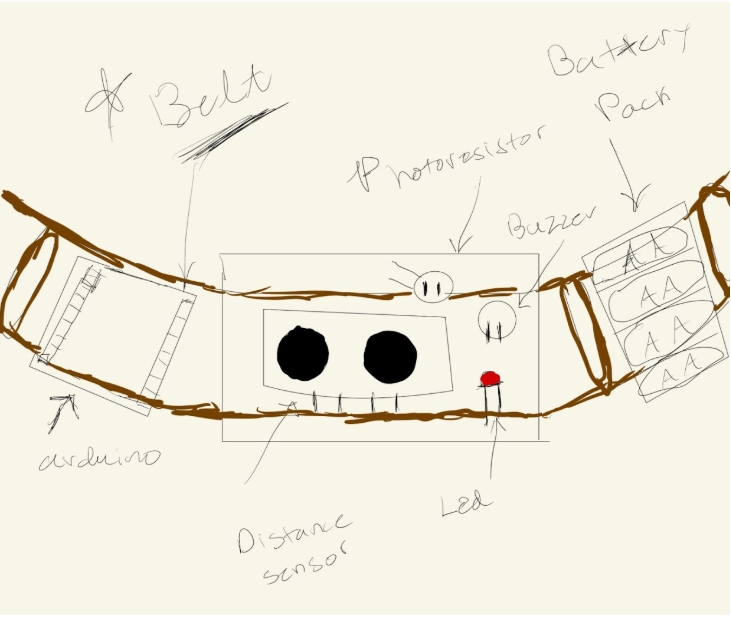 * Belt
Battery
Pack
Photoresistor
Buzzer
AA
AA
AA
AA
arduino
Distance
sensor
Led